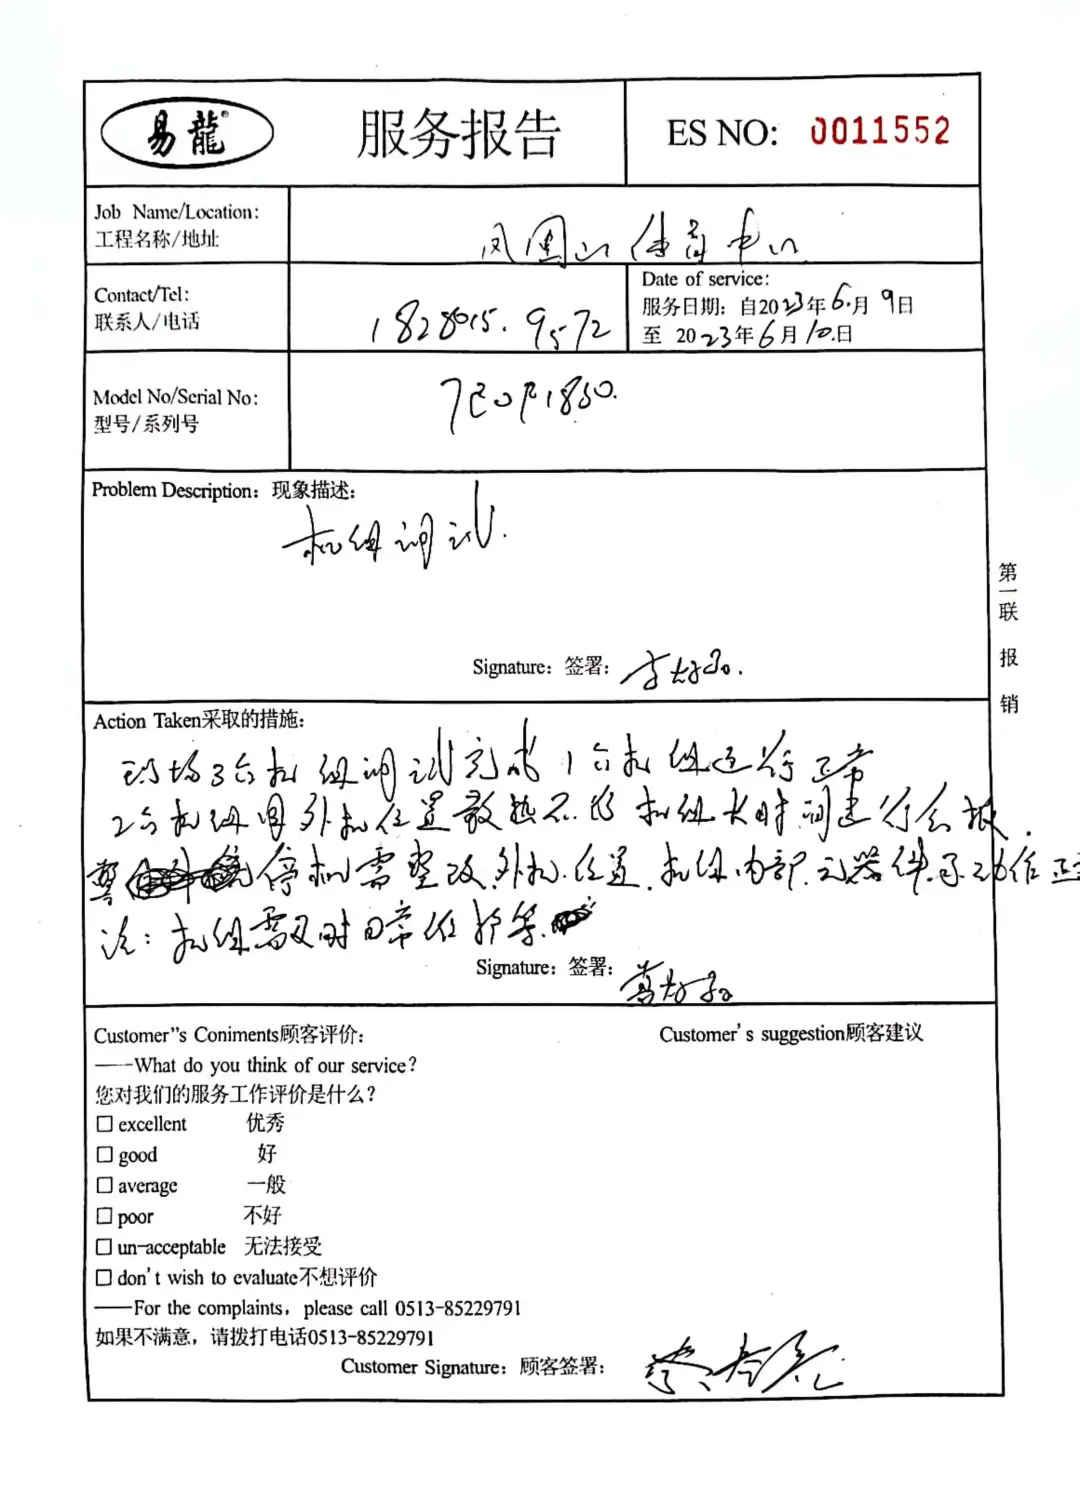 易龍®
服务报告
ES NO: 0011552
Job Name/Location:
工程名称/地址
凤凰山体育中心
Contact/Tel:
联系人/电话
1828015.9572
Date of service:
服务日期: 自2023年6.月9日
至 2023年6月10.日
Model No/Serial No:
型号/系列号
Problem Description: 现象描述:
机组调试.
Signature: 签署:
Action Taken采取的措施:
现场3台机组调试完成1台机组运行正常
2台机组因外机位置散热不好机组长时间运行会报
警 停机需整改外机位置.机组内部元器件动作正
注: 机组需及时日常维护等.
Signature: 签署:
第一联 报销
Customer"s Coniments顾客评价:
Customer's suggestion顾客建议
——What do you think of our service?
您对我们的服务工作评价是什么?
□ excellent 优秀
□ good 好
□ average 一般
□ poor 不好
□ un-acceptable 无法接受
□ don't wish to evaluate不想评价
——For the complaints, please call 0513-85229791
如果不满意, 请拨打电话0513-85229791
Customer Signature: 顾客签署: